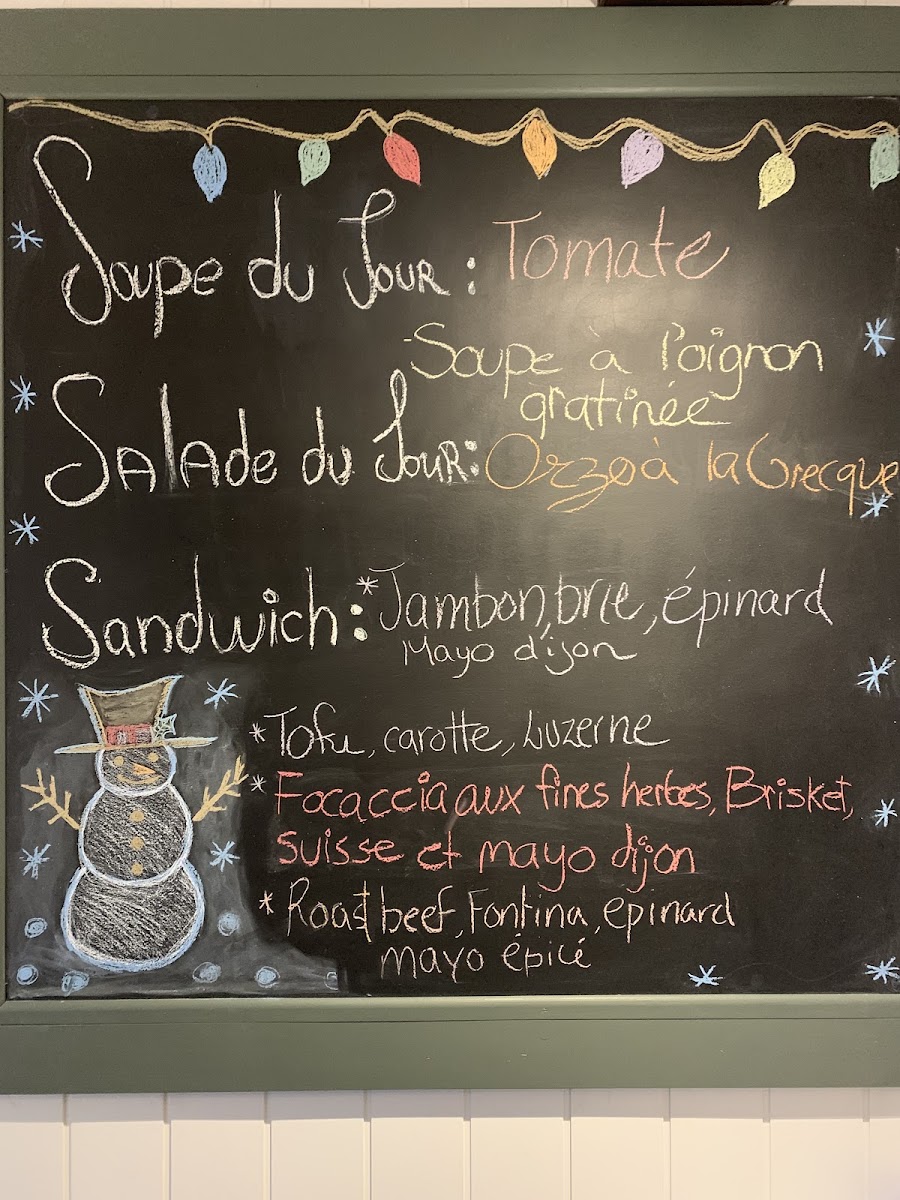 Soupe du Jour : Tomate
-Soupe à l'oignon
gratinée
Salade du Jour: Orzo à la Grecque
Sandwich : *Jambon, brie, épinard
Mayo dijon
*Tofu, carotte, Luzerne
* Focaccia aux fines herbes, Brisket,
suisse et mayo dijon
* Roast beef, Fontina, épinard
mayo épicé